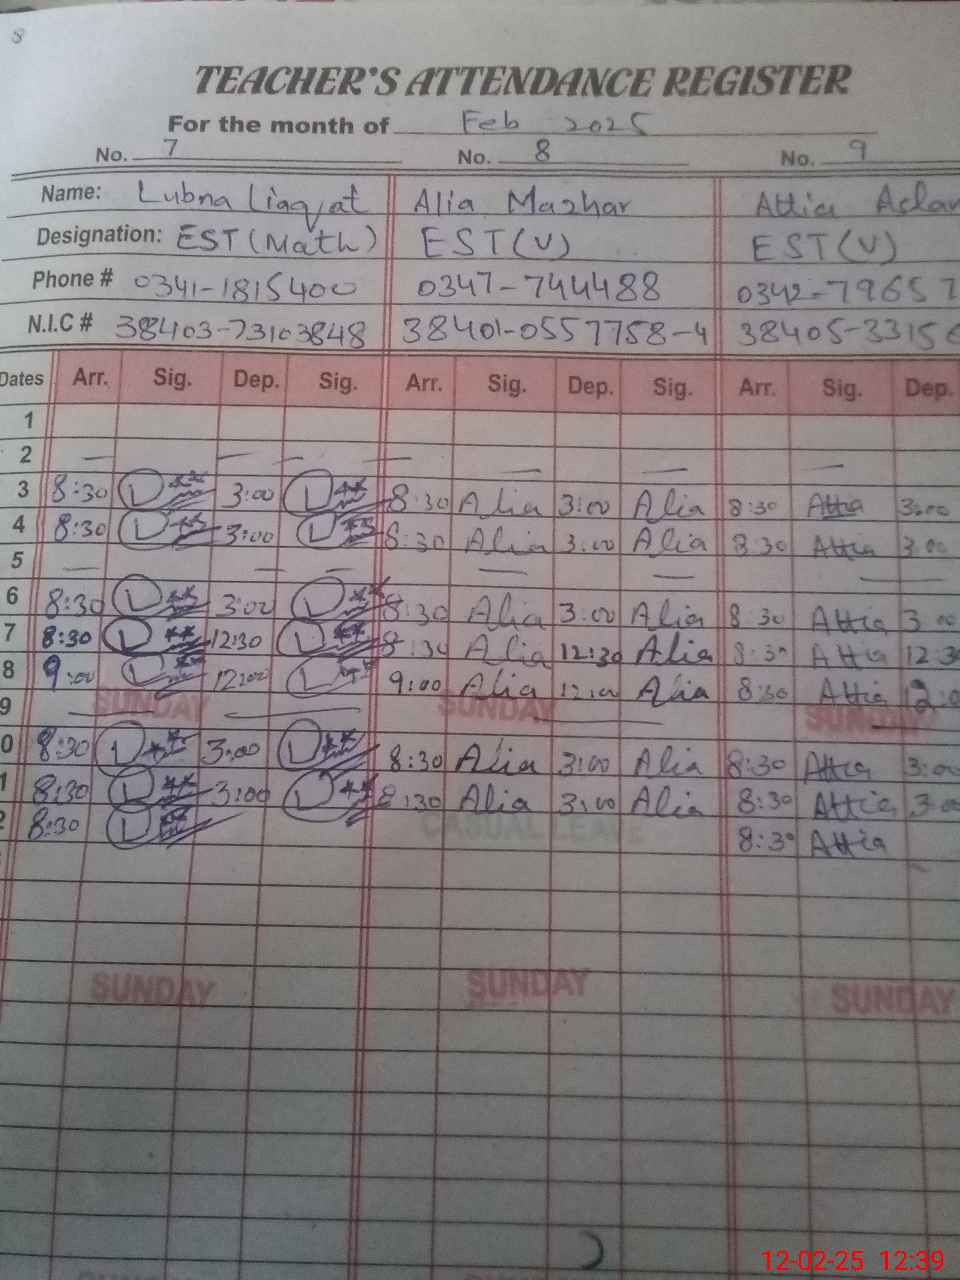 8
TEACHER'S ATTENDANCE REGISTER
For the month of Feb 2025
No. 7 No. 8 No. 9
Name: Lubna Liaqat Alia Mazhar Attia Aslam
Designation: EST (Math) EST (V) EST (V)
Phone # 0341-1815400 0347-744488 0342-79657
N.I.C # 38403-73103848 38401-0557758-4 38405-33156
Dates Arr. Sig. Dep. Sig. Arr. Sig. Dep. Sig. Arr. Sig. Dep.
1
2 — — — — — — —
3 8:30 3:00 8:30 Alia 3:00 Alia 8:30 Attia 3:00
4 8:30 3:00 8:30 Alia 3:00 Alia 8:30 Attia 3:00
5 — — — — — — —
6 8:30 3:00 8:30 Alia 3:00 Alia 8:30 Attia 3:00
7 8:30 12:30 8:30 Alia 12:30 Alia 8:30 Attia 12:30
8 9:00 12:00 9:00 Alia 12:00 Alia 8:30 Attia 12:0
9 SUNDAY SUNDAY SUNDAY
0 8:30 3:00 8:30 Alia 3:00 Alia 8:30 Attia 3:00
1 8:30 3:00 8:30 Alia 3:00 Alia 8:30 Attia 3:00
2 8:30 CASUAL LEAVE 8:30 Attia
SUNDAY SUNDAY SUNDAY
12-02-25 12:39